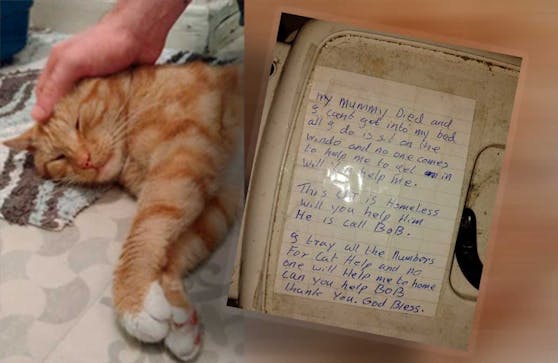 my Mummy Died and
I cant get into my bed
all I do is sit on the
windo and no one comes
to help me to get in
Will you help Me.
This CAT is Homeless
Will you help Him
He is call BoB.
I tray all the Numbers
For Cat Help and no
one will Help me to home
Can you help BoB
thank you. God Bless.